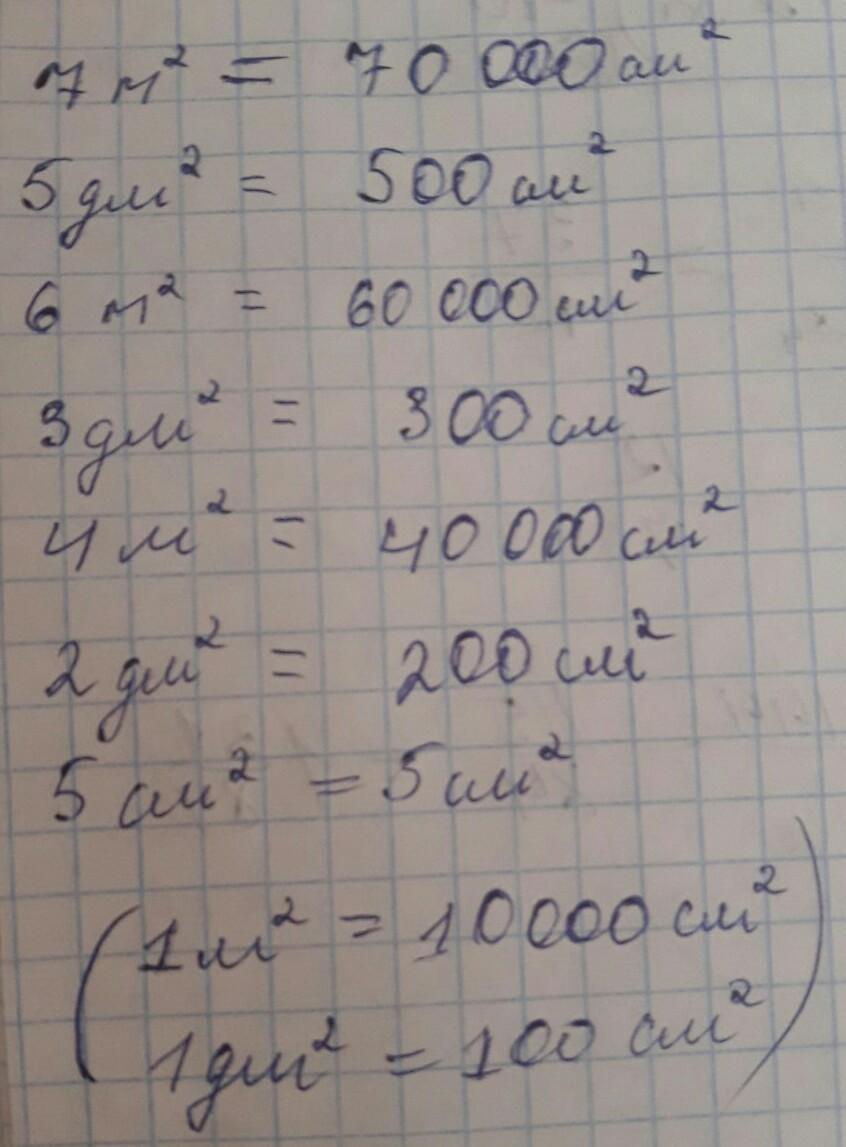 7 м² = 70 000 см²
5 дм² = 500 см²
6 м² = 60 000 см²
3 дм² = 300 см²
4 м² = 40 000 см²
2 дм² = 200 см²
5 см² = 5 см²
(1 м² = 10000 см²
1 дм² = 100 см²)